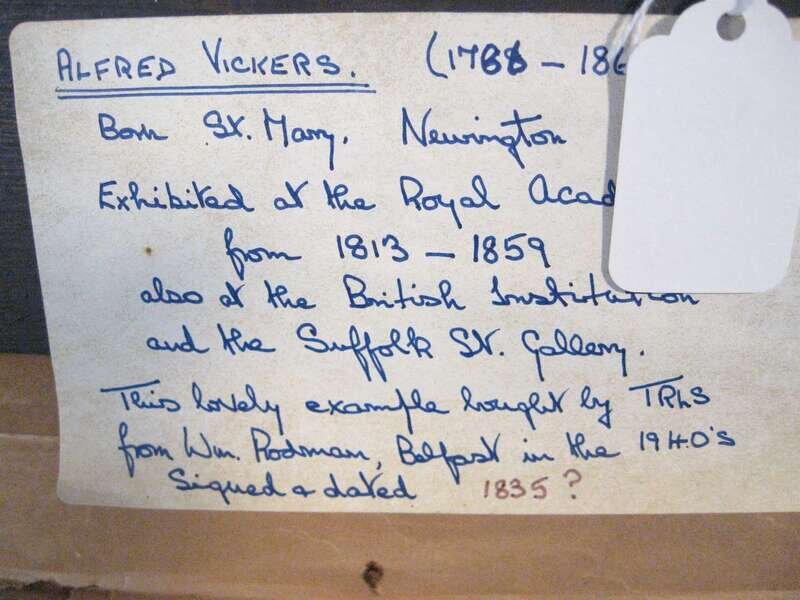 ALFRED VICKERS. (1768 - 186
Born St. Mary, Newington
Exhibited at the Royal Acad
from 1813 - 1859
also at the British Institution
and the Suffolk St. Gallery.
This lovely example bought by TRLS
from Wm. Rodman, Belfast in the 1940's
Signed & dated 1835 ?